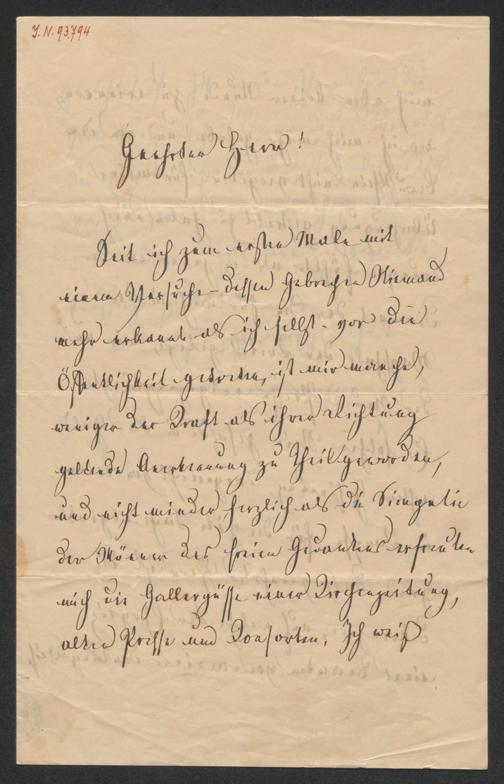 I. N. 93.794
Geehrter Herr!
Seit ich zum ersten Male mit
einem Versuche – dessen Gebrechen Niemand
mehr erkannt als ich selbst – vor die
Öffentlichkeit getreten, ist mir manche,
weniger der Kraft als ihrer Richtung
geltende Anerkennung zu Theil geworden,
und nicht minder herzlich als die Simpatie
der Männer des freien Gedankens erfreuten
mich die Gallergüsse einer Kirchenzeitung,
alten Presse und Konsorten. Ich weiß